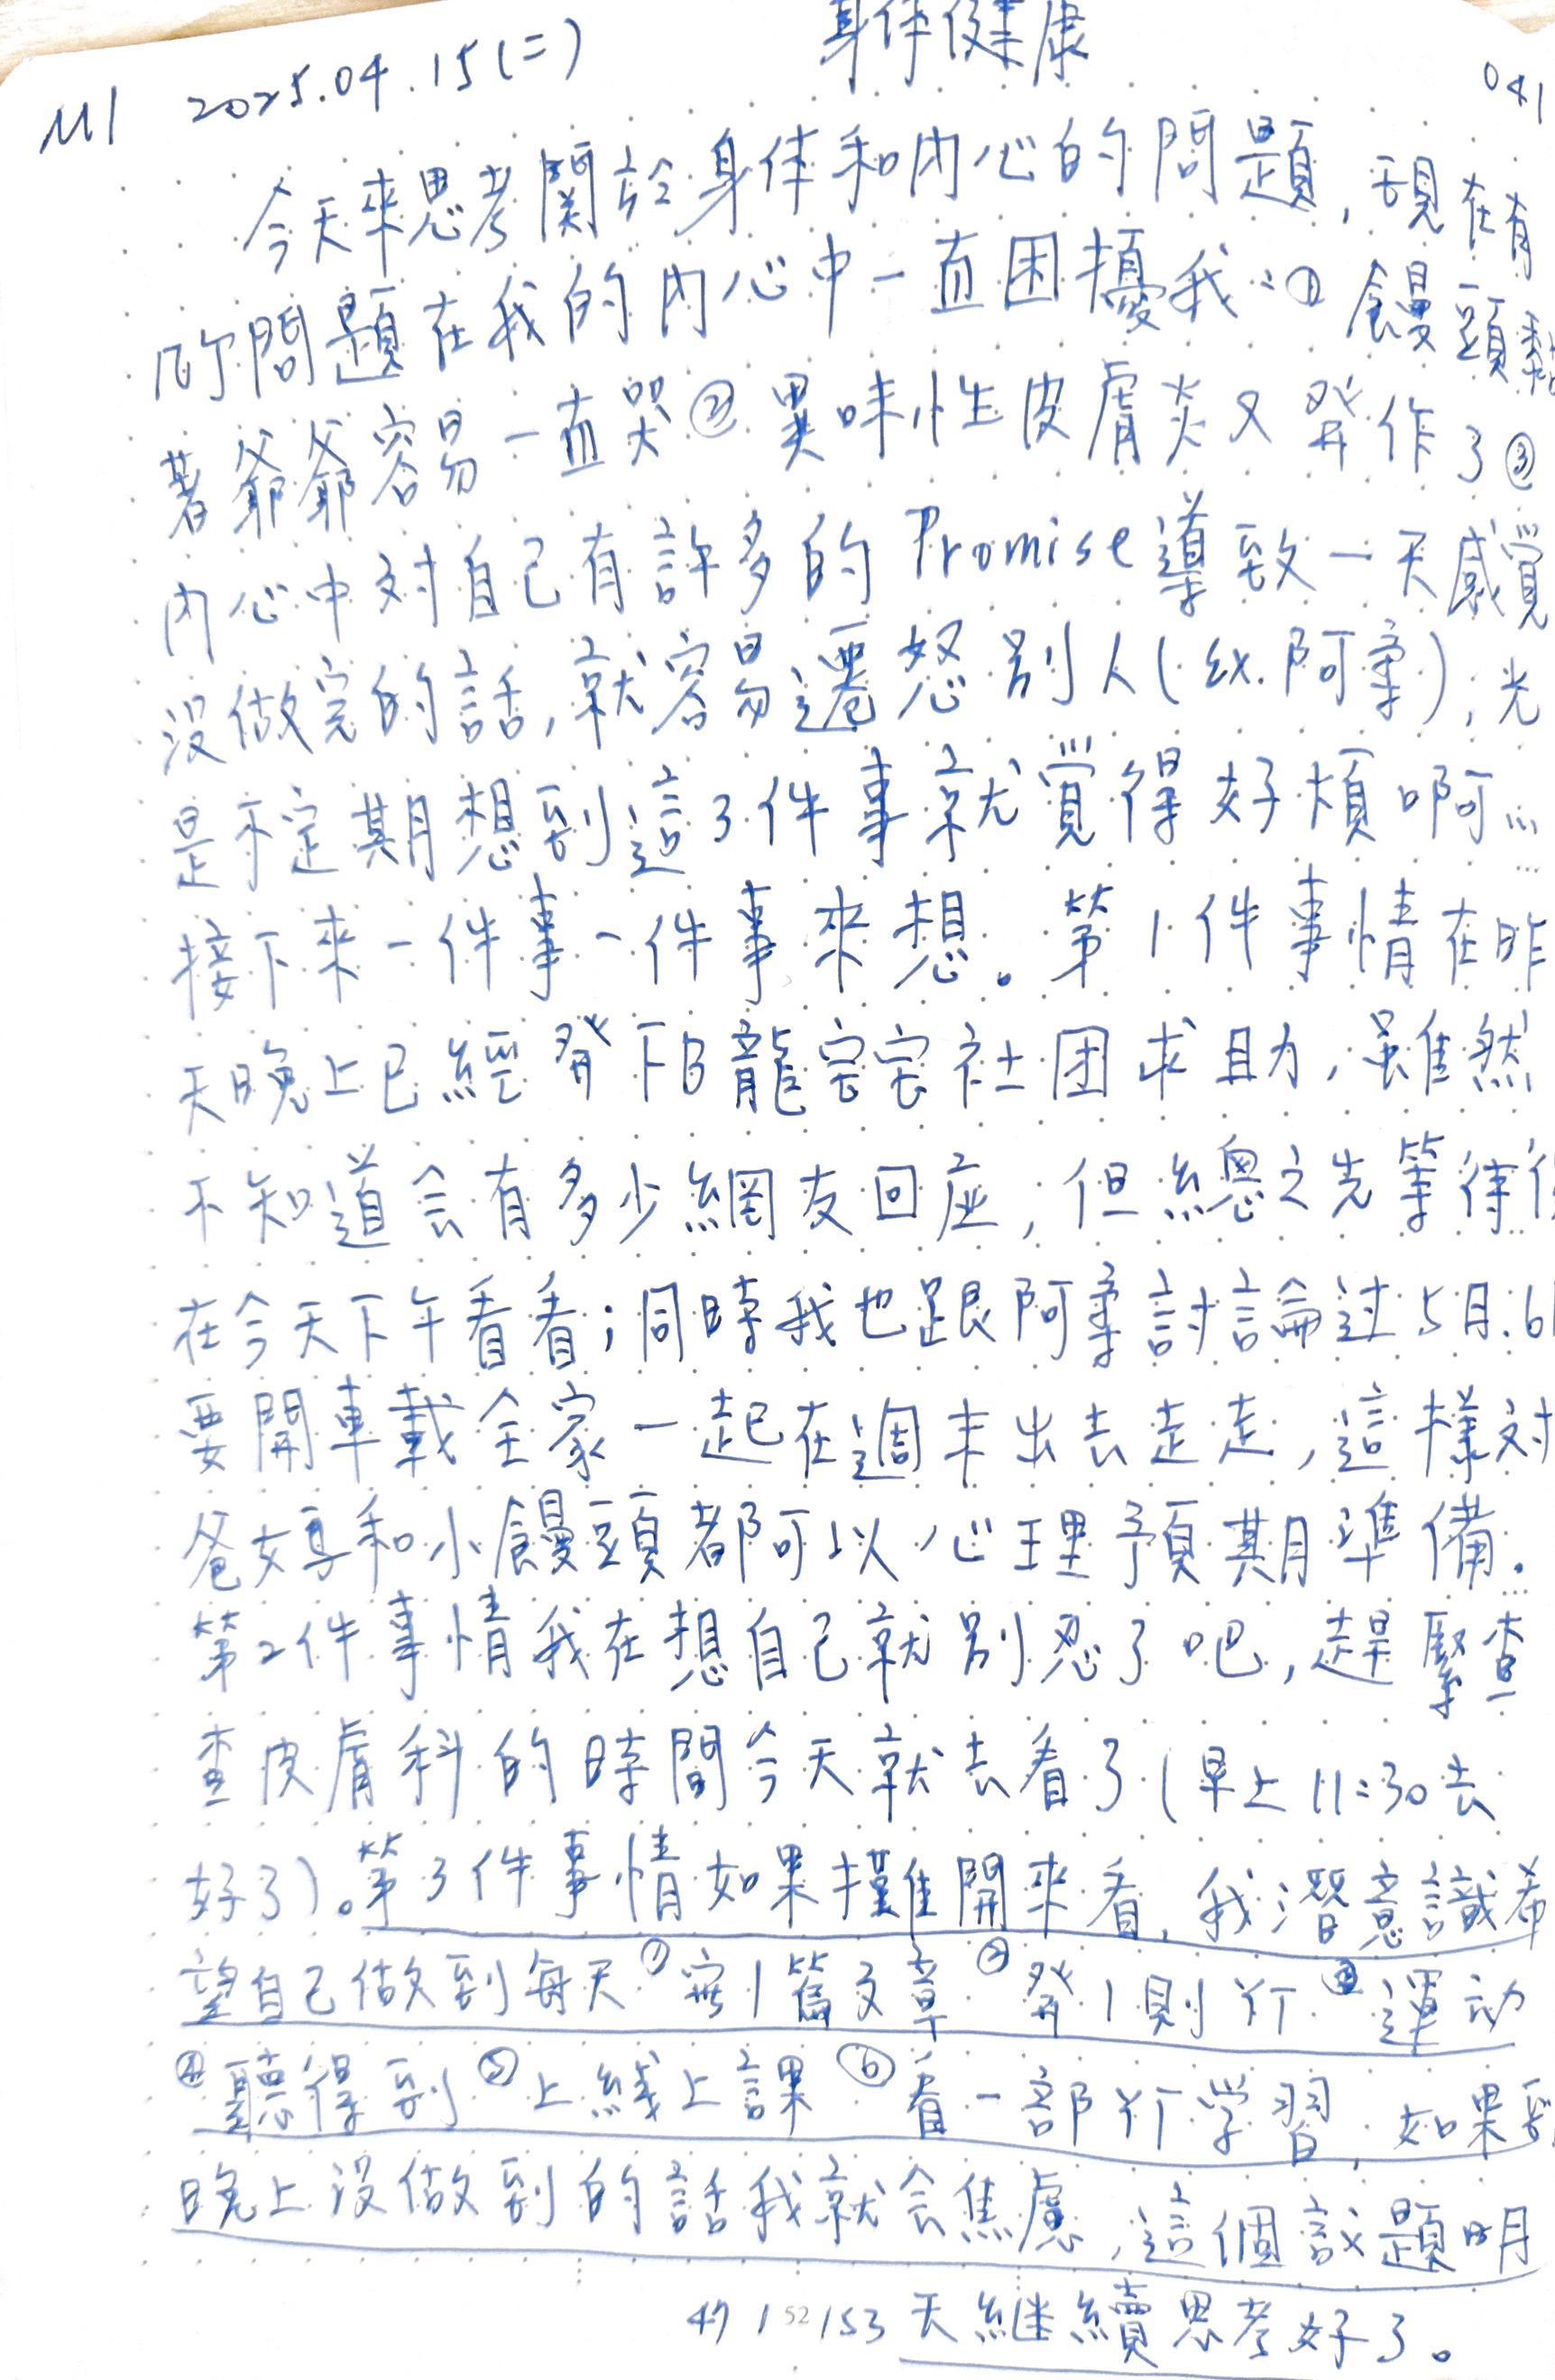 M1 2025.04.15(二) 身体健康 041
今天來思考関於身体和內心的問題,現在有
的問題在我的內心中一直困擾我:① 饅頭黏
著爺爺容易一直哭②異味性皮膚炎又発作了③
內心中対自己有許多的Promise導致一天感覺
沒做完的話,就容易遷怒別人(ex.阿柔),光
是不定期想到這3件事就覺得好煩啊…
接下來一件事一件事來想。第1件事情在昨
天晚上已經発FB龍宅宅社団求助,雖然
不知道会有多少網友回应,但總之先等待
在今天下午看看;同時我也跟阿柔討論过5月.6
要開車載全家一起在週末出去走走,這樣対
爸女享和小饅頭都可以心理予頁期準備.
第2件事情我在想自己就別忍了吧,趕緊查
查皮膚科的時間今天就去看了(早上11:30去
好了)。第3件事情如果攤開來看,我潛意識希
望自己做到每天①寫1篇文章②発1則YT③運动
④聽得到⑤上線上課⑥看一部YT学習,如果到
晚上沒做到的話我就会焦慮,這個議題明
47 / 52 /153 天継續思考好了。